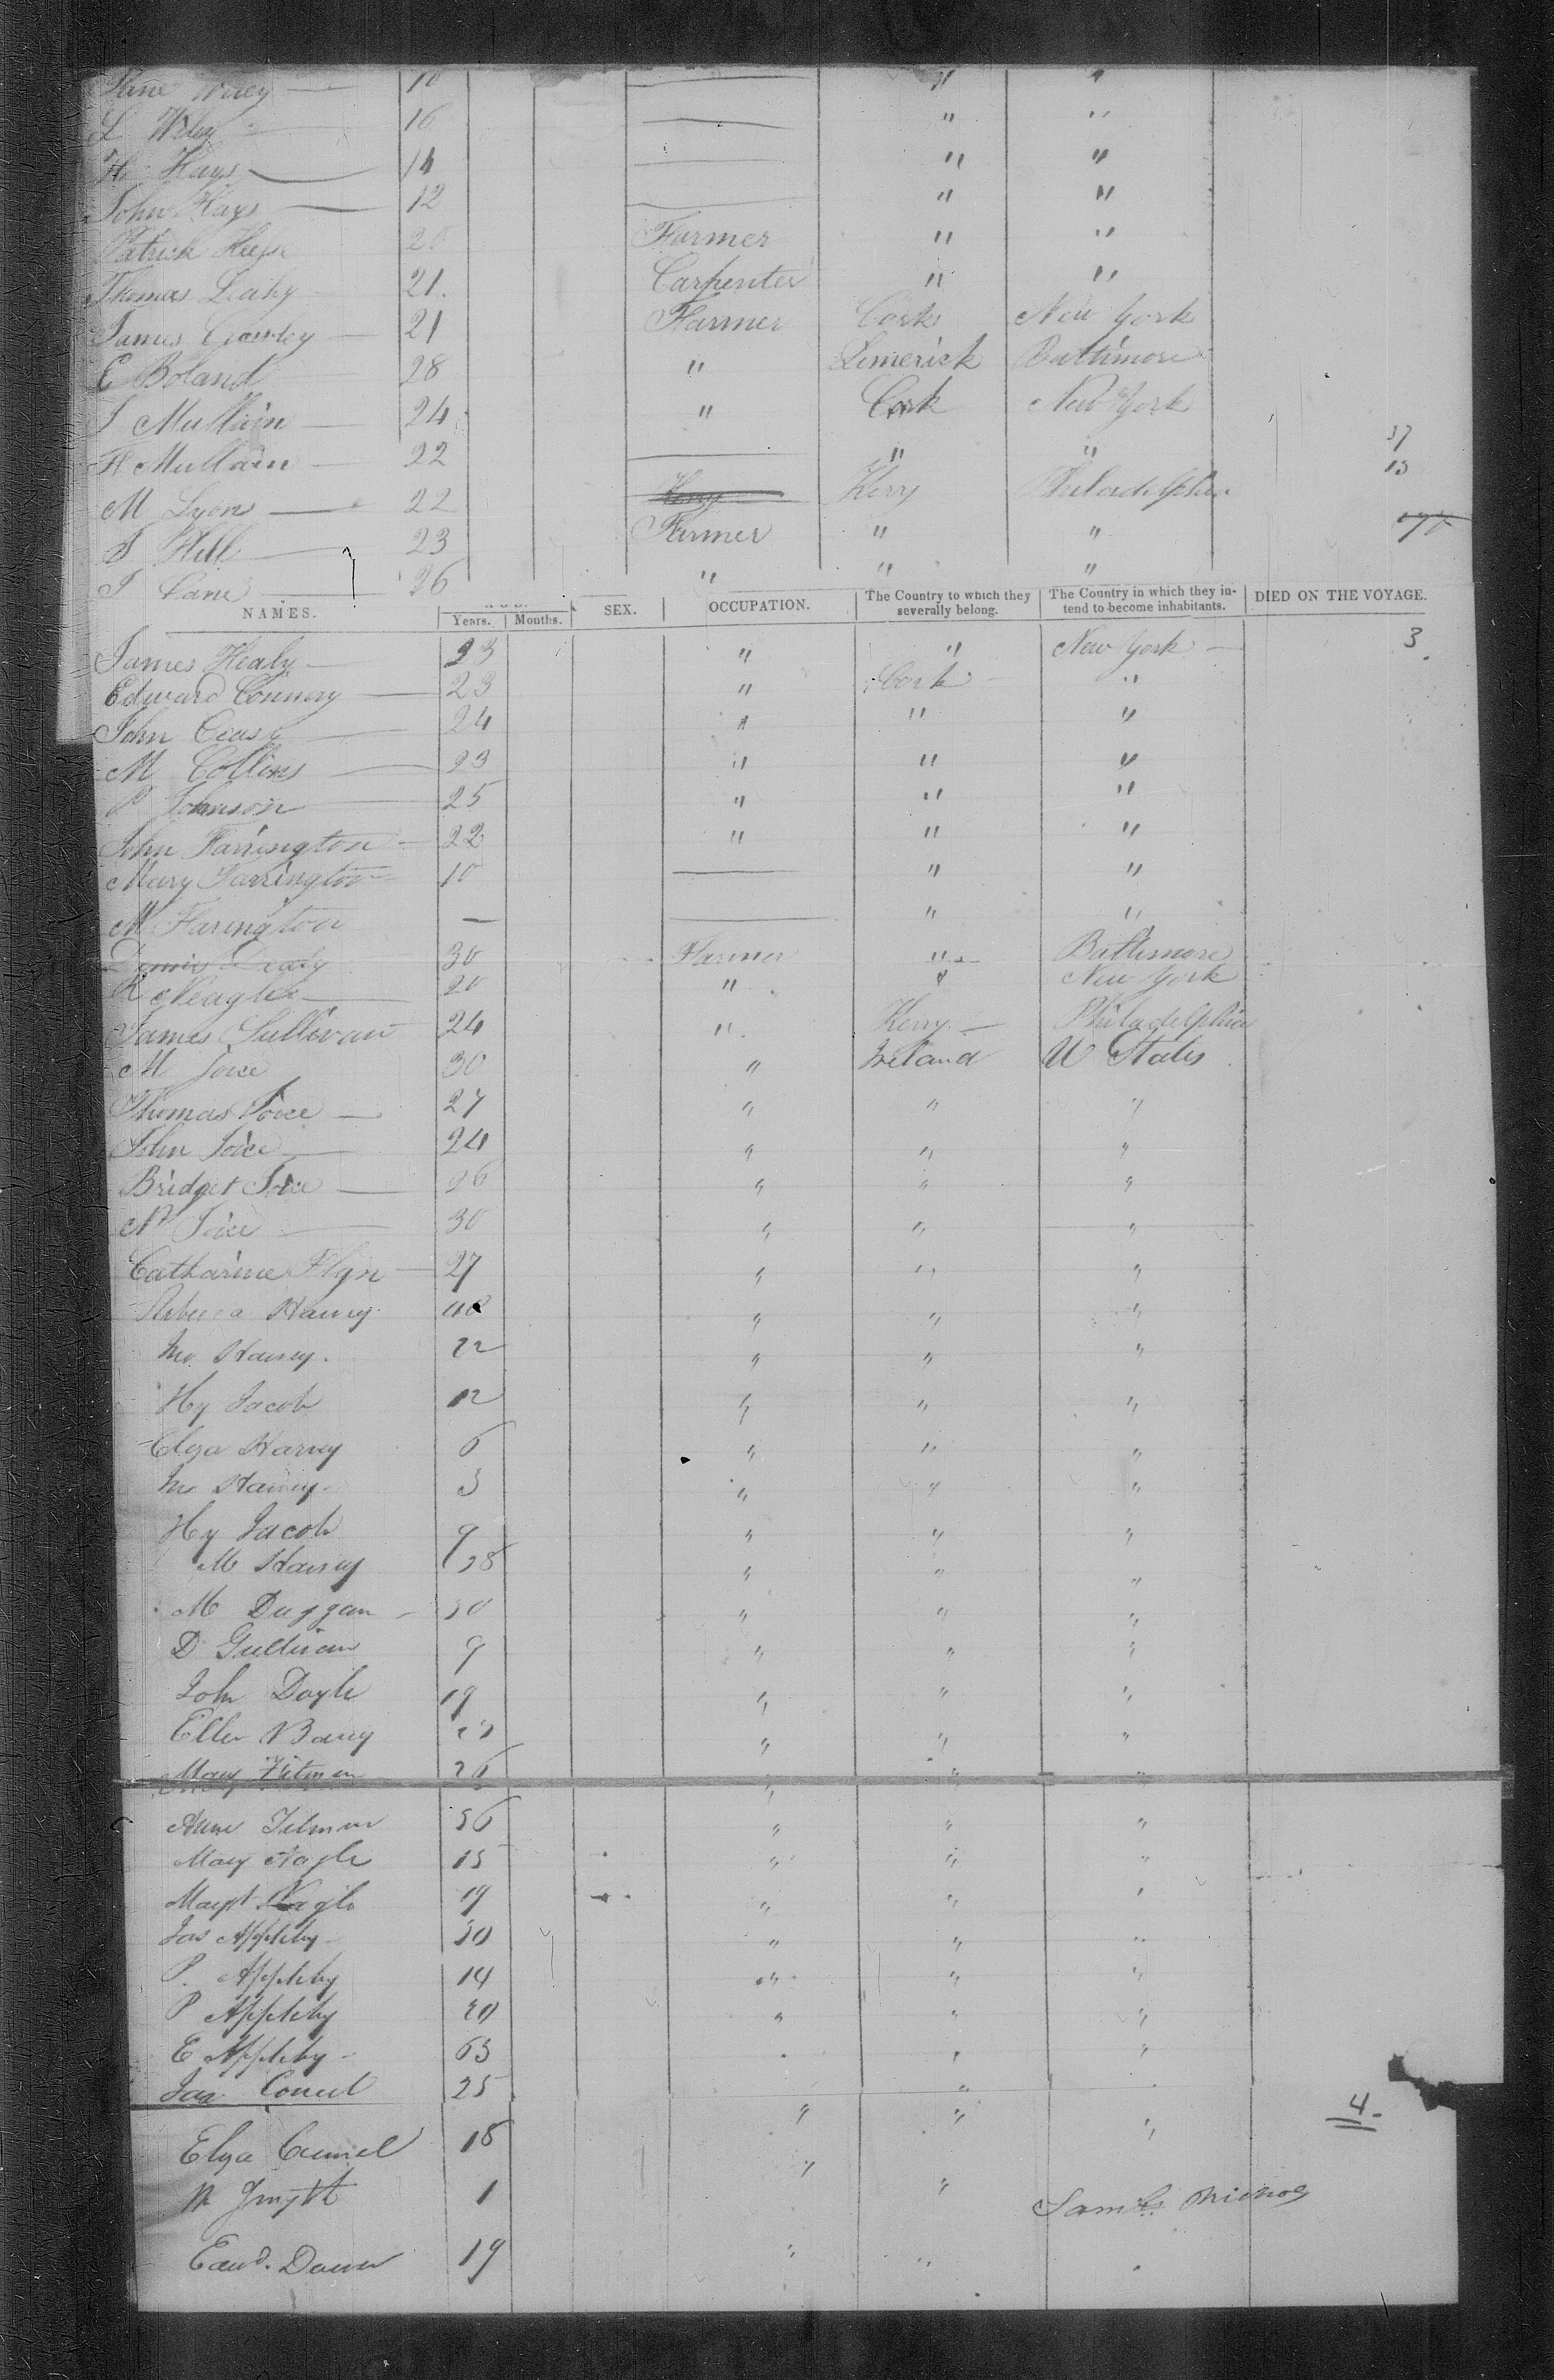 Jane Wiley 10 " "
L Wiley 16 " "
H Hays 14 " "
John Hays 12 " "
Patrick 20 Farmer " "
Thomas Leahy 21. Carpenter " "
James Crowley 21 Farmer Cork New York
E Boland 28 " Limerick Baltimore
J Mullain 24 " Cork New York
37
H Mullain 22 " "
13
M Lyons 22 Kerry Kerry Philadelphia
J Hill 23 Farmer " "
J Cane 26 " " "
NAMES. AGE. Years. Months. SEX. OCCUPATION. The Country to which they severally belong. The Country in which they intend to become inhabitants. DIED ON THE VOYAGE.
James Healy 23 " " New York 3
Edward Connery 23 " Cork "
John 24 " " "
M Collins 23 " " "
P Johnson 25 " " "
John Farrington 22 " " "
Mary Farrington 10 " "
M Farington — " "
Dennis Dealy 30 Farmer " Baltimore
R Neagle 20 " " New York
James Sullivan 24 " Kerry Philadelphia
M Joice 30 " Ireland U States
Thomas Joice 27 " " "
John Joice 24 " " "
Bridget Joice 26 " " "
N Joice 30 " " "
Catharine Flyn 27 " " "
Rebecca Harvey 40 " " "
Jno Harvey. 22 " " "
Hy Jacob 12 " " "
Elza Harvey 6 " " "
Jno Harvey 3 " " "
Hy Jacob 9 " " "
M Harvey 28 " " "
M Duggan 30 " " "
D Sullivan 9 " " "
John Doyle 19 " " "
Ellen Barry " " "
Mary Fitman 26 " " "
Anne Fitman 56 " " "
Mary Nagle 15 " " "
Margt Nagle 19 " " "
Jas Appleby 30 " " "
P. Appleby 14 " " "
P Appleby 20 " " "
E Appleby 63 " " "
Jas 25 "
4
Elza 18 " " "
W Smyth 1 " "
Saml.
Edwd. 19 " " "